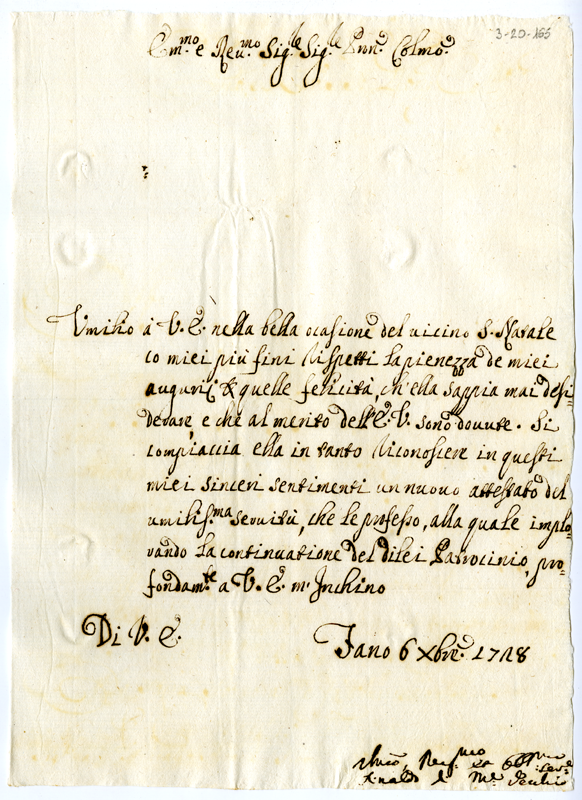 3-20-155
Em.mo e Reu.mo Sig.le Sig.le Pnn.e Colmo.
Vmilio à V. E. nella bella ocasione del uicino S. Natale
co miei più fini Rispetti la pienezza de miei
augurij & quelle felicità, ch'ella sappia mai desi=
derare, e che al merito dell'E. V. sono douute. Si
compiaccia ella in tanto Riconoscere in questi
miei sinceri sentimenti un nuouo attestato del
umiliss.ma seruitù, che le professo, alla quale implo=
rando la continuatione del dilei Patrocinio, pro=
fondam.te a V. E. m'Inchino
Di V. E.
Fano 6 Xbre. 1718